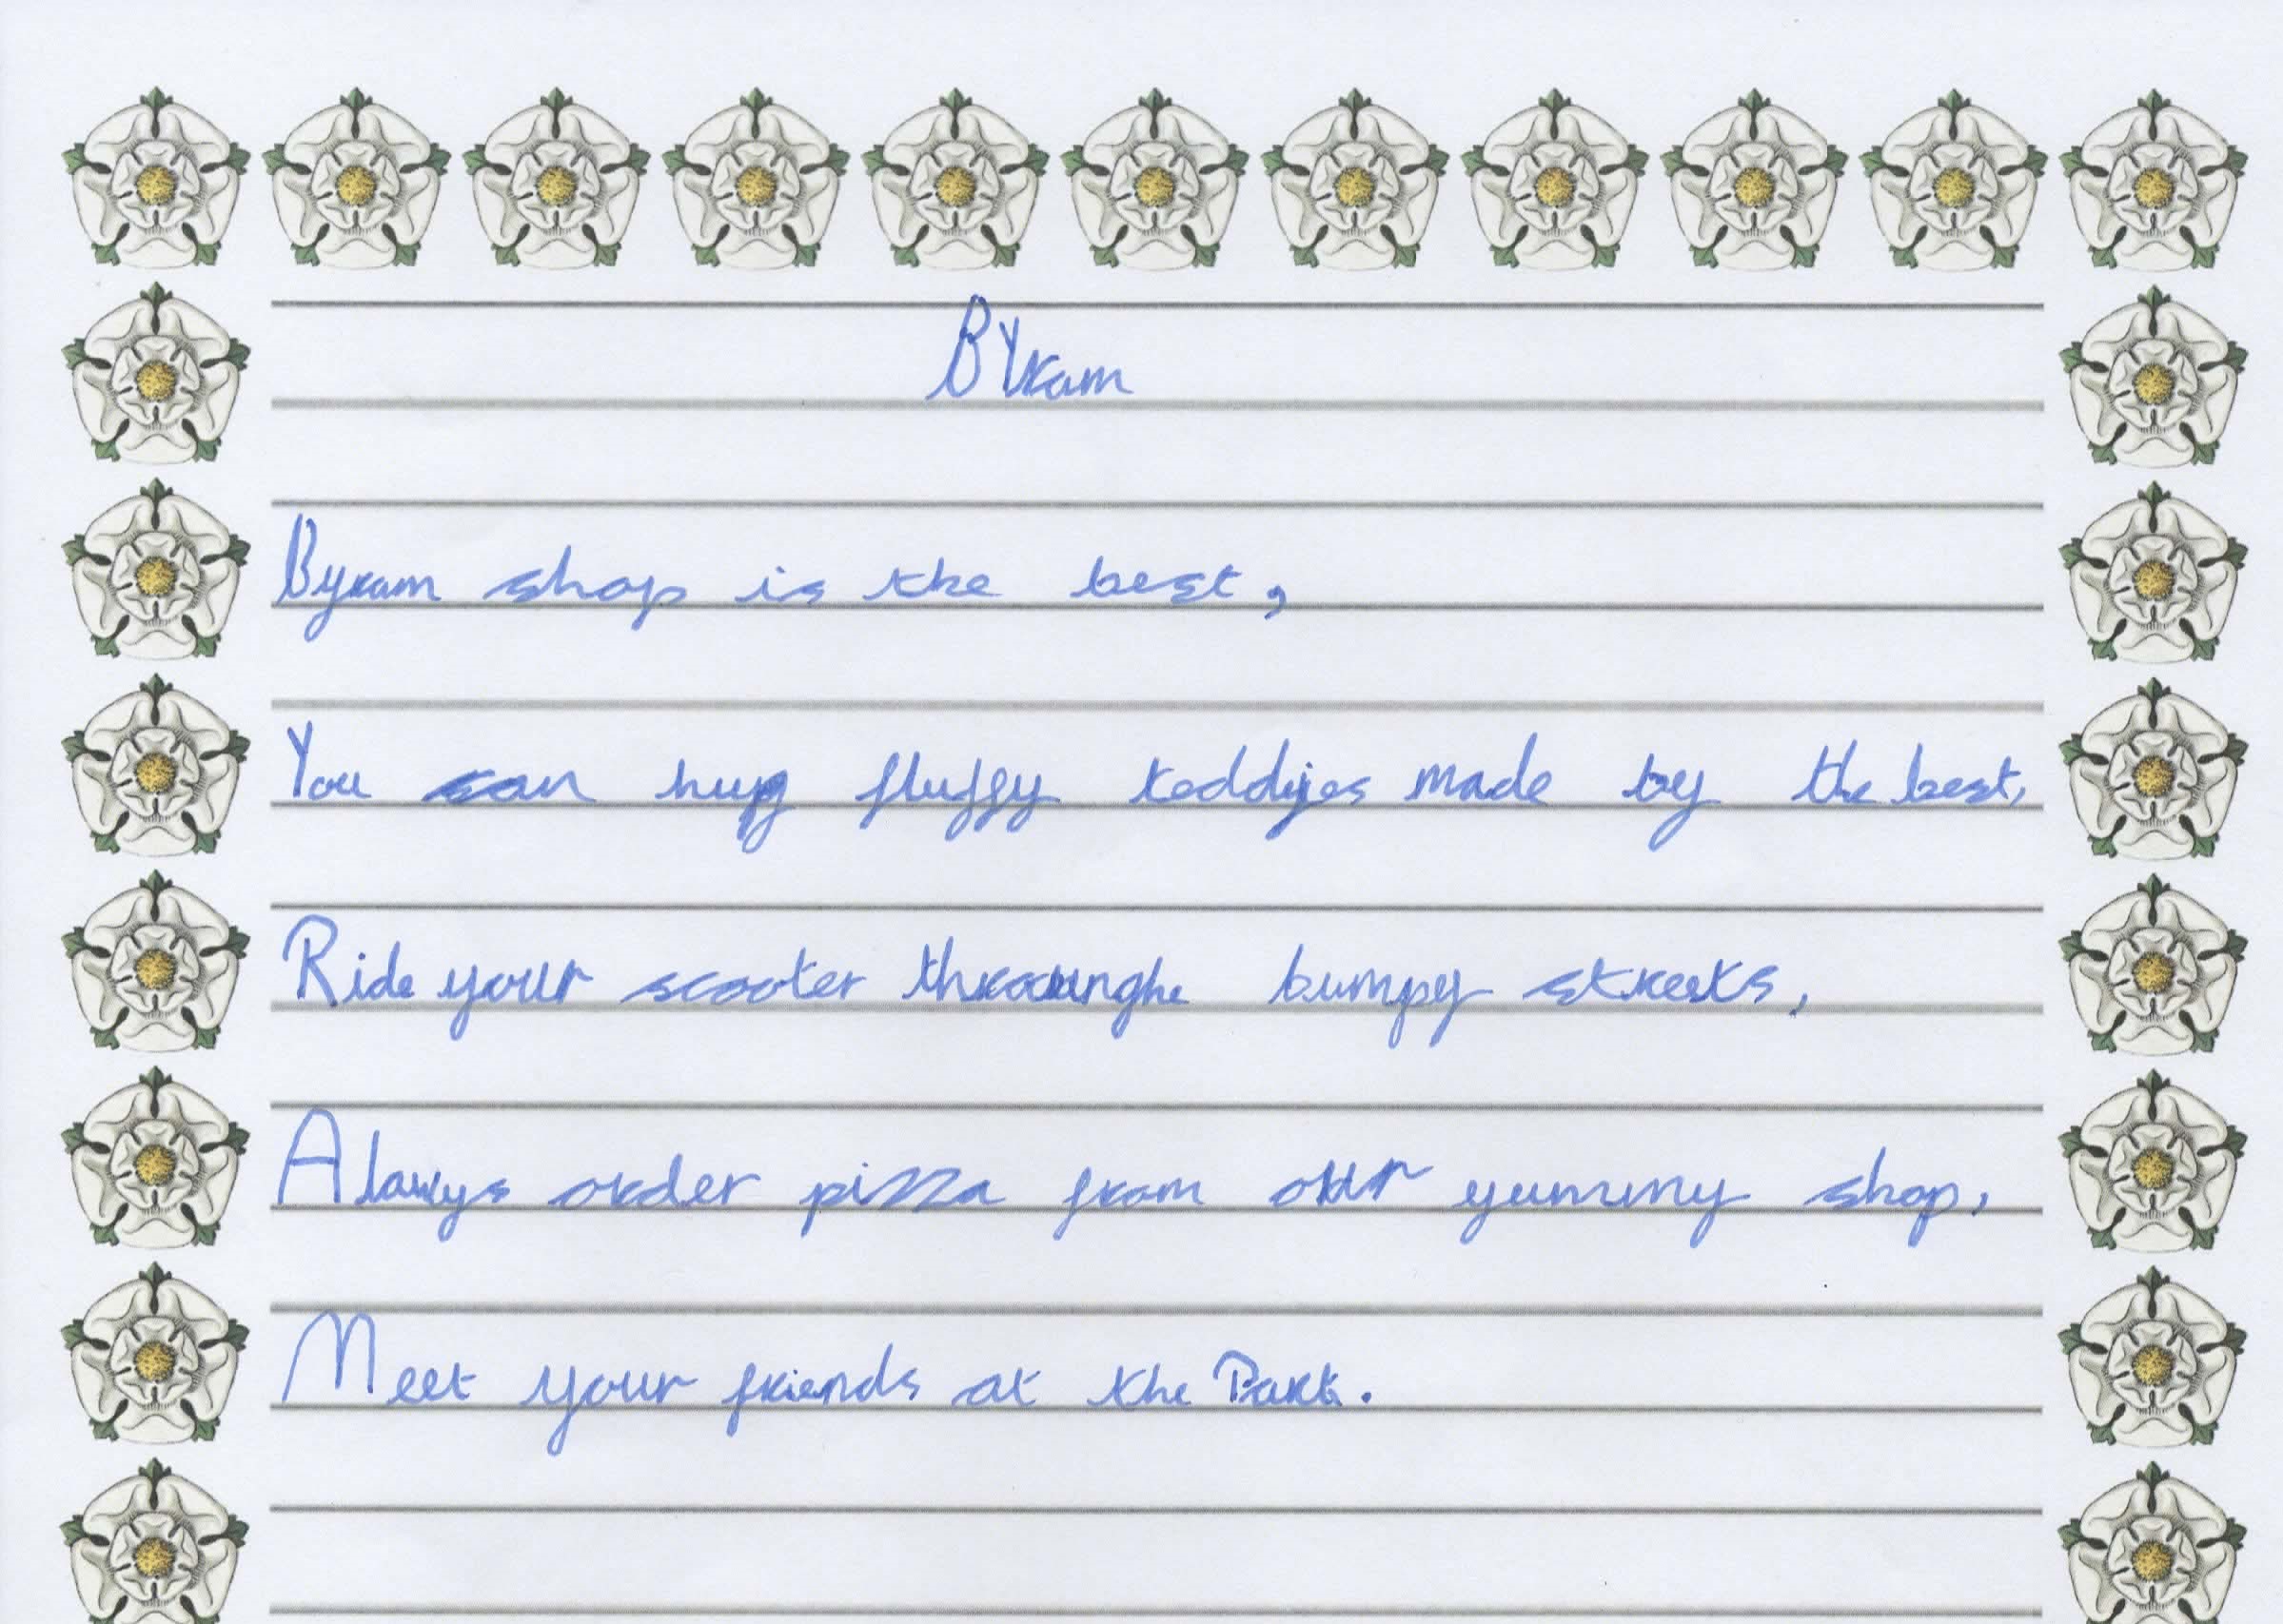 BYram
Byram shop is the best,
You can hug fluffy teddyes made by the best,
Ride your scooter bumpy streets,
Alawys order pizza from our yummy shop,
Meet your friends at the Park.